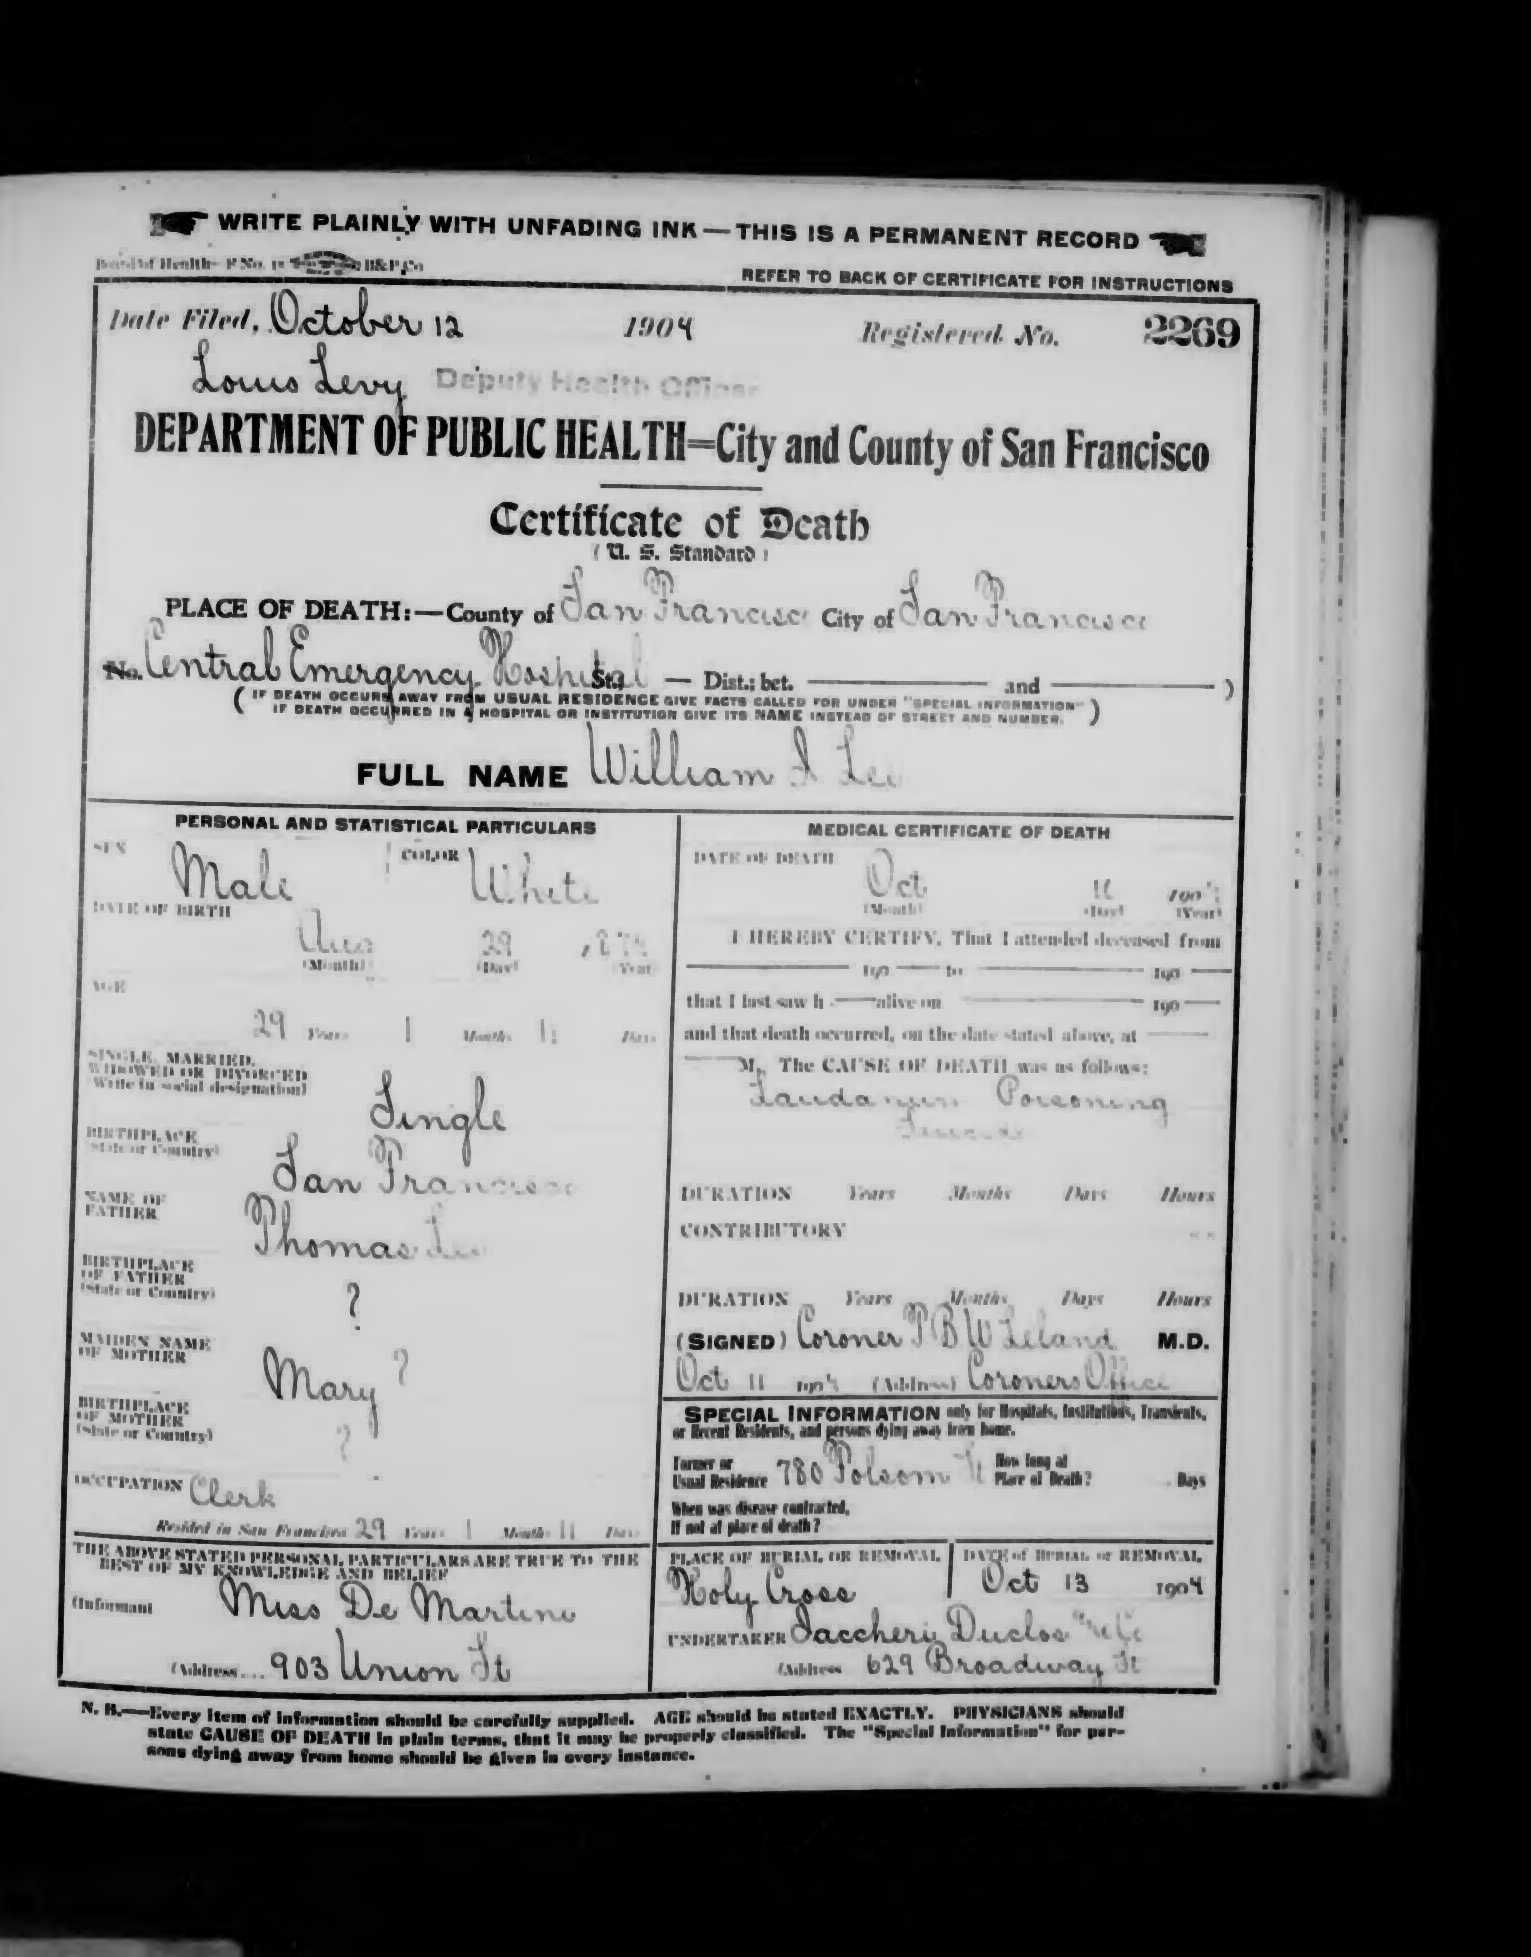 WRITE PLAINLY WITH UNFADING INK — THIS IS A PERMANENT RECORD
Board of Health— F. No. H&P Co
REFER TO BACK OF CERTIFICATE FOR INSTRUCTIONS
Date Filed, October 12 1904 Registered No. 2269
Louis Levy Deputy Health Officer
DEPARTMENT OF PUBLIC HEALTH=City and County of San Francisco
Certificate of Death
(U. S. Standard)
PLACE OF DEATH:—County of San Francisco City of San Francisco
No. Central Emergency Hospital St.; — Dist.; bet. — and — )
( IF DEATH OCCURS AWAY FROM USUAL RESIDENCE GIVE FACTS CALLED FOR UNDER "SPECIAL INFORMATION"
IF DEATH OCCURRED IN A HOSPITAL OR INSTITUTION GIVE ITS NAME INSTEAD OF STREET AND NUMBER. )
FULL NAME William Lee
PERSONAL AND STATISTICAL PARTICULARS
SEX Male COLOR White
DATE OF BIRTH
Aug 29
(Month) (Day) (Year)
AGE
29 Years 1 Months 11 Days
SINGLE, MARRIED,
WIDOWED OR DIVORCED
(Write in social designation)
Single
BIRTHPLACE
(State or Country)
San Francisco
NAME OF
FATHER
Thomas Lee
BIRTHPLACE
OF FATHER
(State or Country)
?
MAIDEN NAME
OF MOTHER
Mary ?
BIRTHPLACE
OF MOTHER
(State or Country)
?
OCCUPATION Clerk
Resided in San Francisco 29 Years 1 Months 11 Days
THE ABOVE STATED PERSONAL PARTICULARS ARE TRUE TO THE
BEST OF MY KNOWLEDGE AND BELIEF
(Informant Miss De Martini
(Address.... 903 Union St
MEDICAL CERTIFICATE OF DEATH
DATE OF DEATH
Oct 11 1904
(Month) (Day) (Year)
I HEREBY CERTIFY, That I attended deceased from
— 190 — to — 190 —
that I last saw h — alive on — 190 —
and that death occurred, on the date stated above, at —
— M. The CAUSE OF DEATH was as follows:
Laudanum Poisoning
Suicide
DURATION Years Months Days Hours
CONTRIBUTORY
DURATION Years Months Days Hours
(SIGNED) Coroner T B W Leland M.D.
Oct 11 1904 (Address) Coroners Office
SPECIAL INFORMATION only for Hospitals, Institutions, Transients,
or Recent Residents, and persons dying away from home.
Former or
Usual Residence 780 Folsom St How long at
Place of Death? Days
When was disease contracted,
If not at place of death?
PLACE OF BURIAL OR REMOVAL
Holy Cross
DATE of BURIAL or REMOVAL
Oct 13 1904
UNDERTAKER Iaccheri Duclos Co
(Address 629 Broadway St
N. B.—Every item of information should be carefully supplied. AGE should be stated EXACTLY. PHYSICIANS should
state CAUSE OF DEATH in plain terms, that it may be properly classified. The "Special Information" for per-
sons dying away from home should be given in every instance.